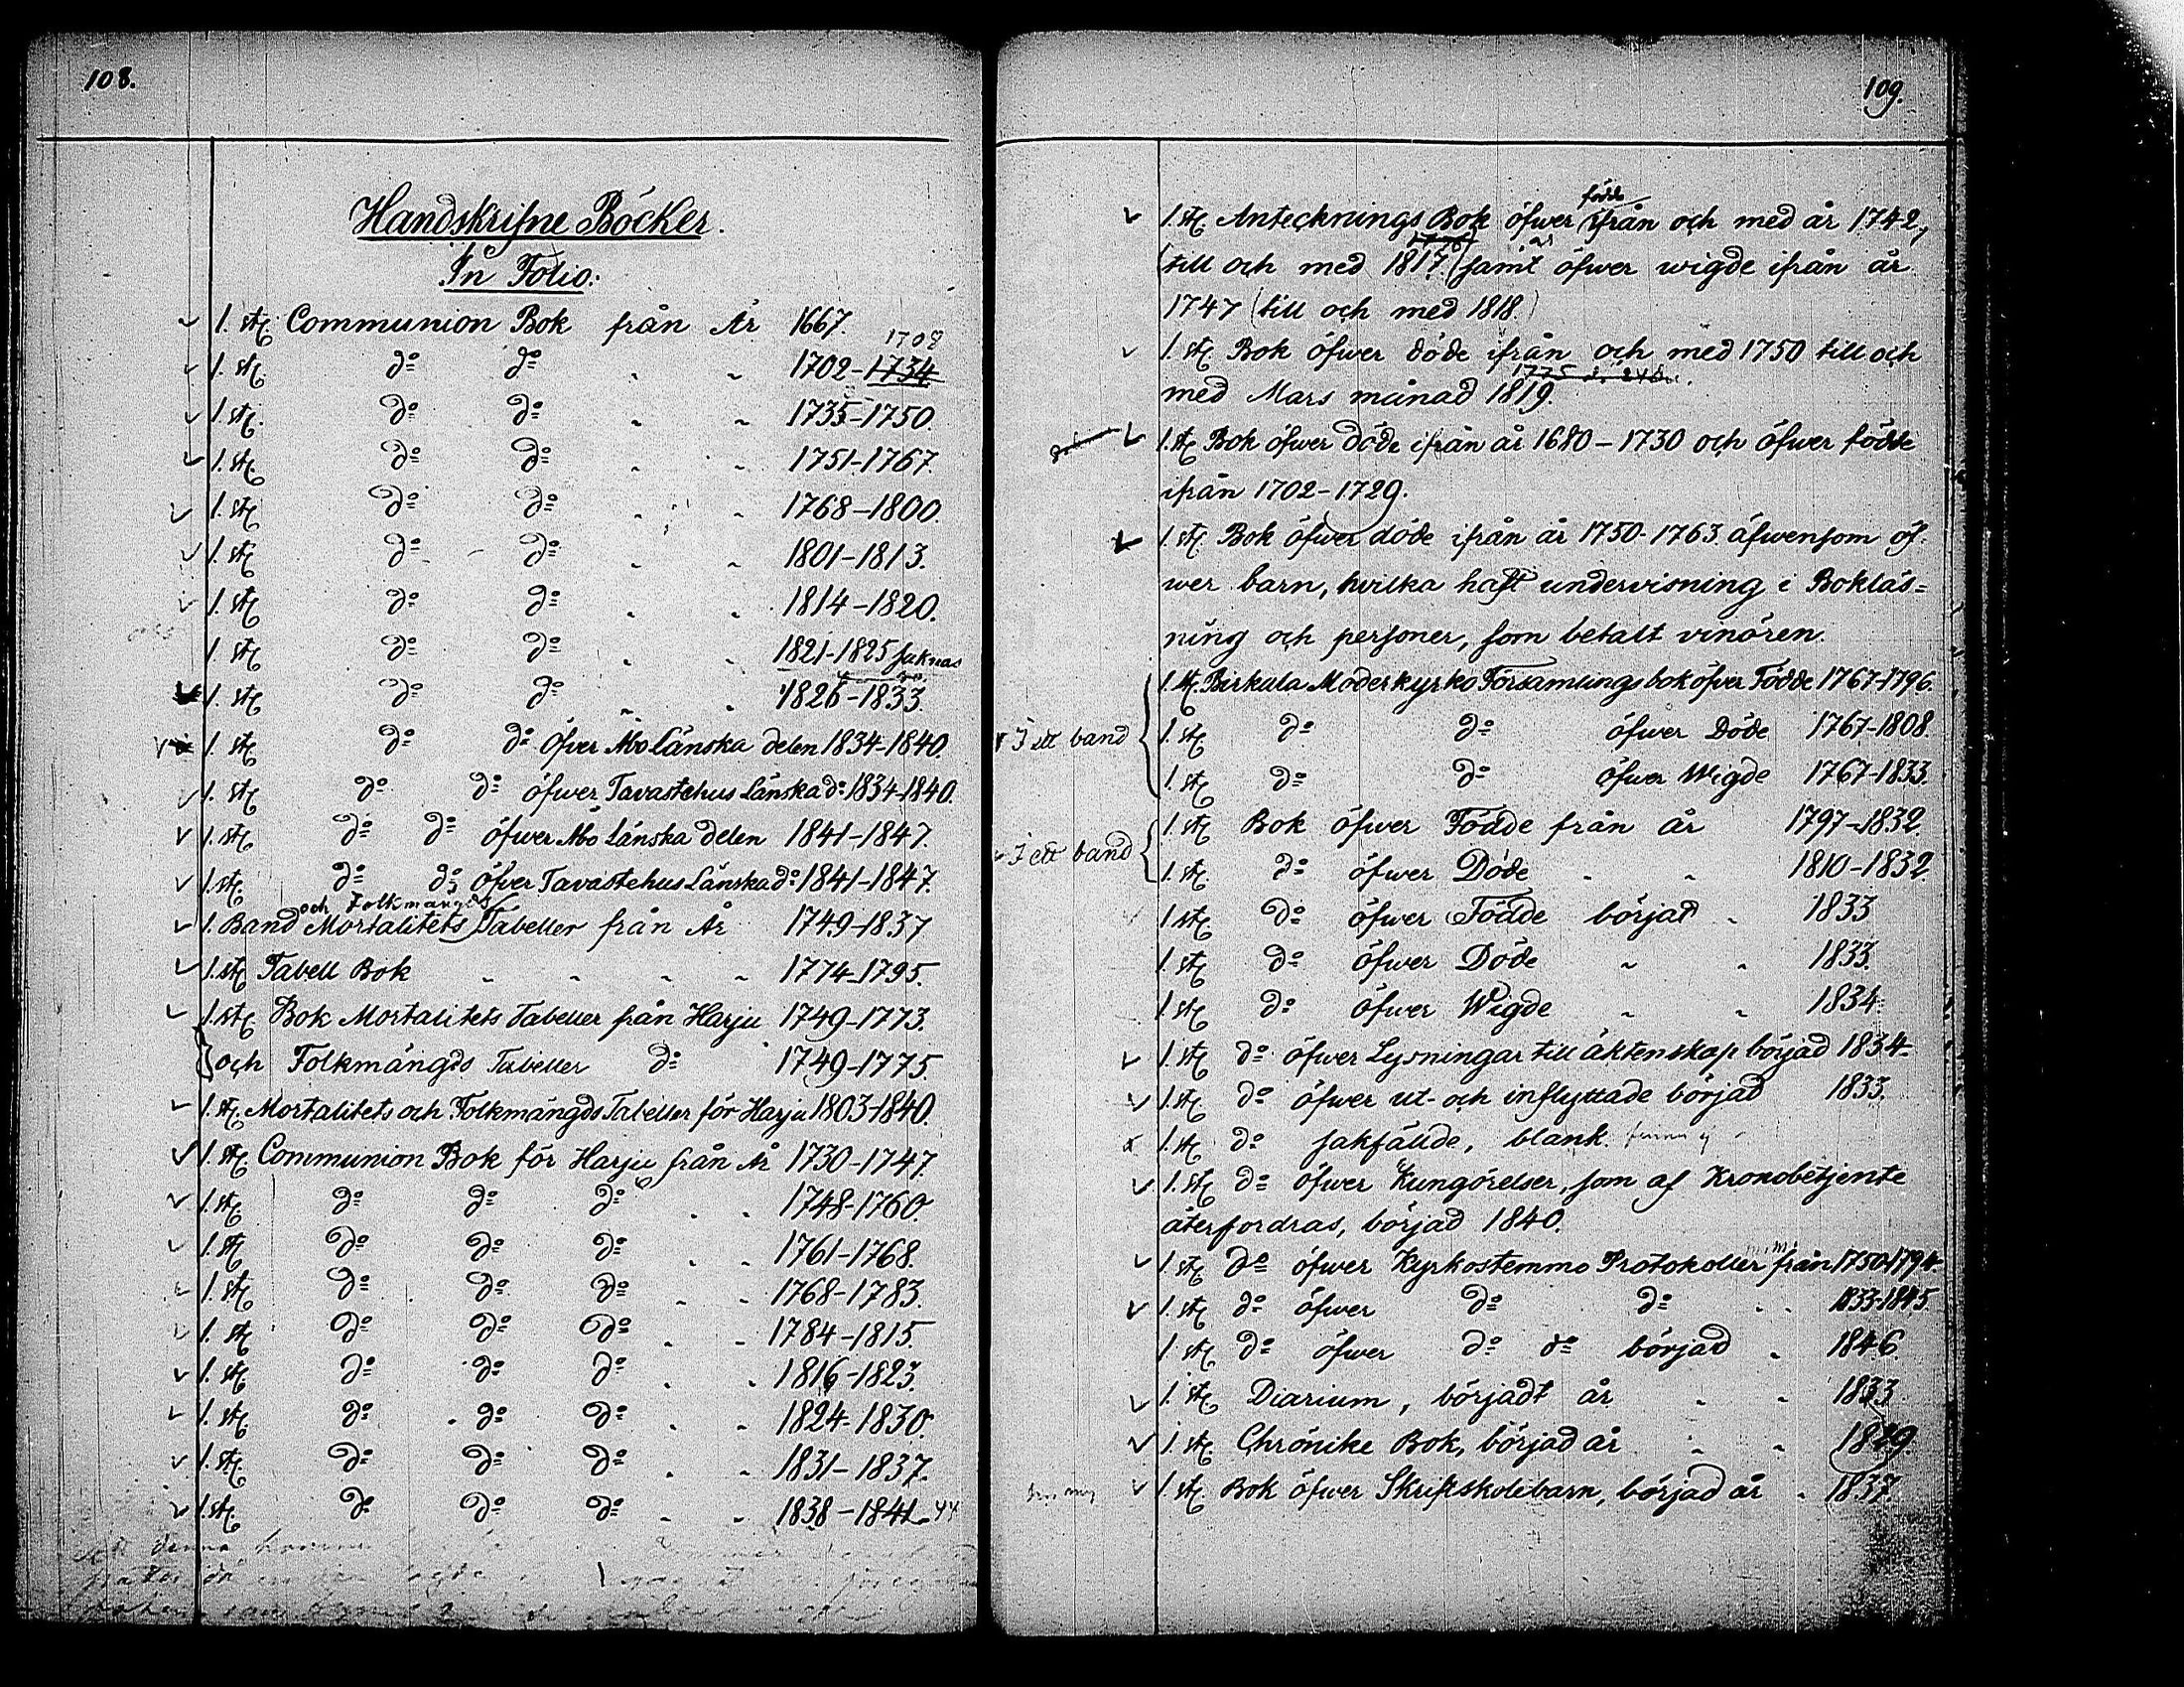 108.
Handskrifne Böcker.
In Folio:
1. st. Communion Bok från År 1667.
1708
1. st. do do " " 1702-1734
1. st. do do " " 1735-1750.
1. st. do do " " 1751-1767.
1. st. do do " " 1768-1800.
1. st. do do " " 1801-1813.
1. st. do do " " 1814-1820.
1. st. do do " " 1821-1825 saknas
1. st. do do " " 1826-1833.
1. st. do do öfver Åbo Länska delen 1834-1840.
1. st. do do öfwer Tavastehus Länska do 1834-1840.
1. st. do do öfwer Åbo Länska delen 1841-1847.
1. st. do do öfver Tavastehus Länska do 1841-1847.
och Folkmängds
1. Band Mortalitets Tabeller från År 1749-1837
1. st. Tabell Bok " " " " 1774-1795.
1. st. Bok Mortalitets Tabeller från Harju 1749-1773.
och Folkmängds Tabeller do 1749-1775.
1. st. Mortalitets och Folkmängds Tabeller för Harju 1803-1840.
1. st. Communion Bok för Harju från År 1730-1747.
1. st. do do do " " 1748-1760.
1. st. do do do " " 1761-1768.
1. st. do do do " " 1768-1783.
1. st. do do do " " 1784-1815.
1. st. do do do " " 1816-1823.
1. st. do do do " " 1824-1830.
1. st. do do do " " 1831-1837.
1. st. do do do " " 1838-1841-44
109.
födde
1. st. Antecknings Bok öfwer ifrån och med år 1742,
1776
till och med 1817. samt öfwer wigde ifrån år
1747 (till och med 1818.)
1. st. Bok öfwer döde ifrån och med 1750 till och
1775
med Mars månad 1819.
1. st. Bok öfwer döde ifrån år 1680-1730 och öfwer födde
ifrån 1702-1729.
1. st. Bok öfwer döde ifrån år 1750-1763. äfwensom öf-
wer barn, hvilka haft undervisning i Bokläs=
ning och personer, som betalt vinören.
1. st. Birkala Moderkyrko Församlings bok öfver Födde 1767-1796.
I ett band
1. st. do do öfwer Döde 1767-1808.
1. st. do do öfwer Wigde 1767-1833.
1. st. Bok öfwer Födde från år 1797-1832.
I ett band
1. st. do öfwer Döde " " 1810-1832
1. st. do öfwer Födde börjad " 1833
1. st. do öfwer Döde " " 1833.
1. st. do öfwer Wigde " " 1834.
1. st. do öfwer Lysningar till äktenskap börjad 1834.
1. st. do öfwer ut- och inflyttade börjad 1833.
1. st. do sakfällde, blank. finns ej
1. st. do öfwer Kungörelser, som af Kronobetjente
återfordras, börjad 1840.
1. st. do öfwer Kyrkostemmo Protokoller från 1750-1794
1. st. do öfwer do do " " 1833-1845.
1. st. do öfwer do do börjad " 1846.
1. st. Diarium, börjadt år " " 1833
1. st. Chrönike Bok, börjad år " " 1829
1. st. Bok öfwer Skriftskolebarn, börjad år " 1837.